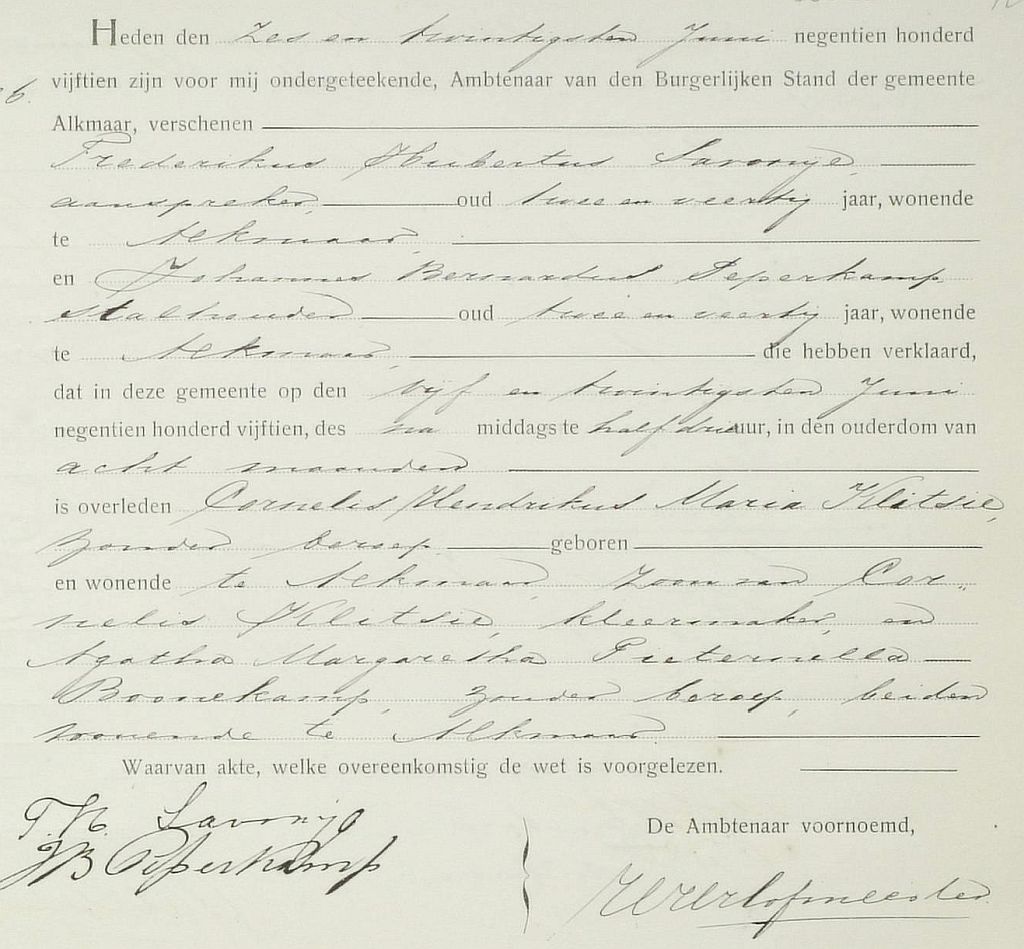 Heden den Zes en twintigsten Juni negentien honderd
vijftien zijn voor mij ondergeteekende, Ambtenaar van den Burgerlijken Stand der gemeente
Alkmaar, verschenen
Frederikus Hubertus Savonije,
aanspreker, oud twee en veertig jaar, wonende
te Alkmaar
en Johannes Bernardus Peperkamp
stalhouder oud twee en veertig jaar, wonende
te Alkmaar, die hebben verklaard,
dat in deze gemeente op den vijf en twintigsten Juni
negentien honderd vijftien, des na middags te half drie uur, in den ouderdom van
acht maanden
is overleden Cornelis Hendrikus Maria Klitsie,
zonder beroep geboren
en wonende te Alkmaar, zoon van Cor„
nelis Klitsie, kleermaker, en
Agatha Margaretha Pieternella
Boonekamp, zonder beroep, beiden
wonende te Alkmaar.
Waarvan akte, welke overeenkomstig de wet is voorgelezen.
Savonije
JB Peperkamp
De Ambtenaar voornoemd,